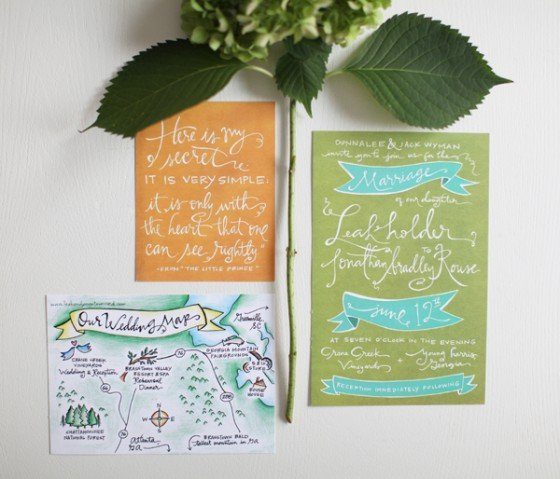 Here is my
secret
IT IS VERY SIMPLE:
it is only with
the heart that one
can see rightly"
-FROM "THE LITTLE PRINCE"
DONNALEE & JACK WYMAN
invite you to join us for the
Marriage
of our daughter
Leah holder
TO
Jonathan Bradley Rouse
June 12th
AT SEVEN O'CLOCK IN THE EVENING
Crane Creek
Vineyards
+
Young Harris,
Georgia
RECEPTION IMMEDIATELY FOLLOWING
Our Wedding Map
CRANE CREEK
VINEYARDS
Wedding & Reception
BRASSTOWN VALLEY
RESORT & SPA
Rehearsal
Dinner
76
GEORGIA MOUNTAIN
FAIRGROUNDS
Greenville,
SC
HOUSE
CHATTAHOOCHEE
NATIONAL FOREST
76
W
E
S
Atlanta
GA
BRASSTOWN BALD
tallest mountain in Ga